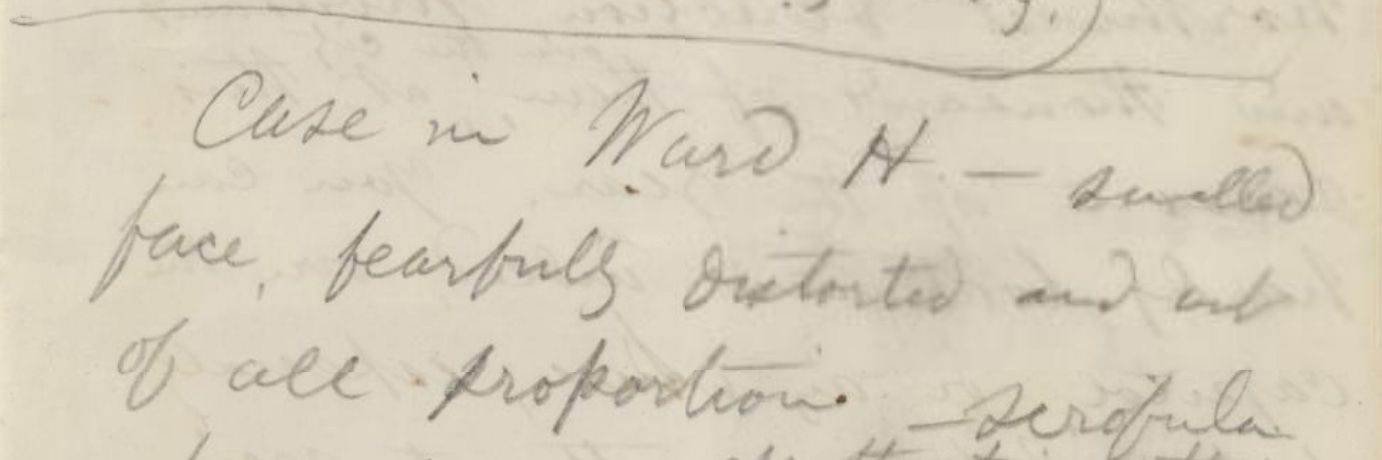 Case in Ward H — swelled
face, fearfully distorted and out
of all proportion — scrofula